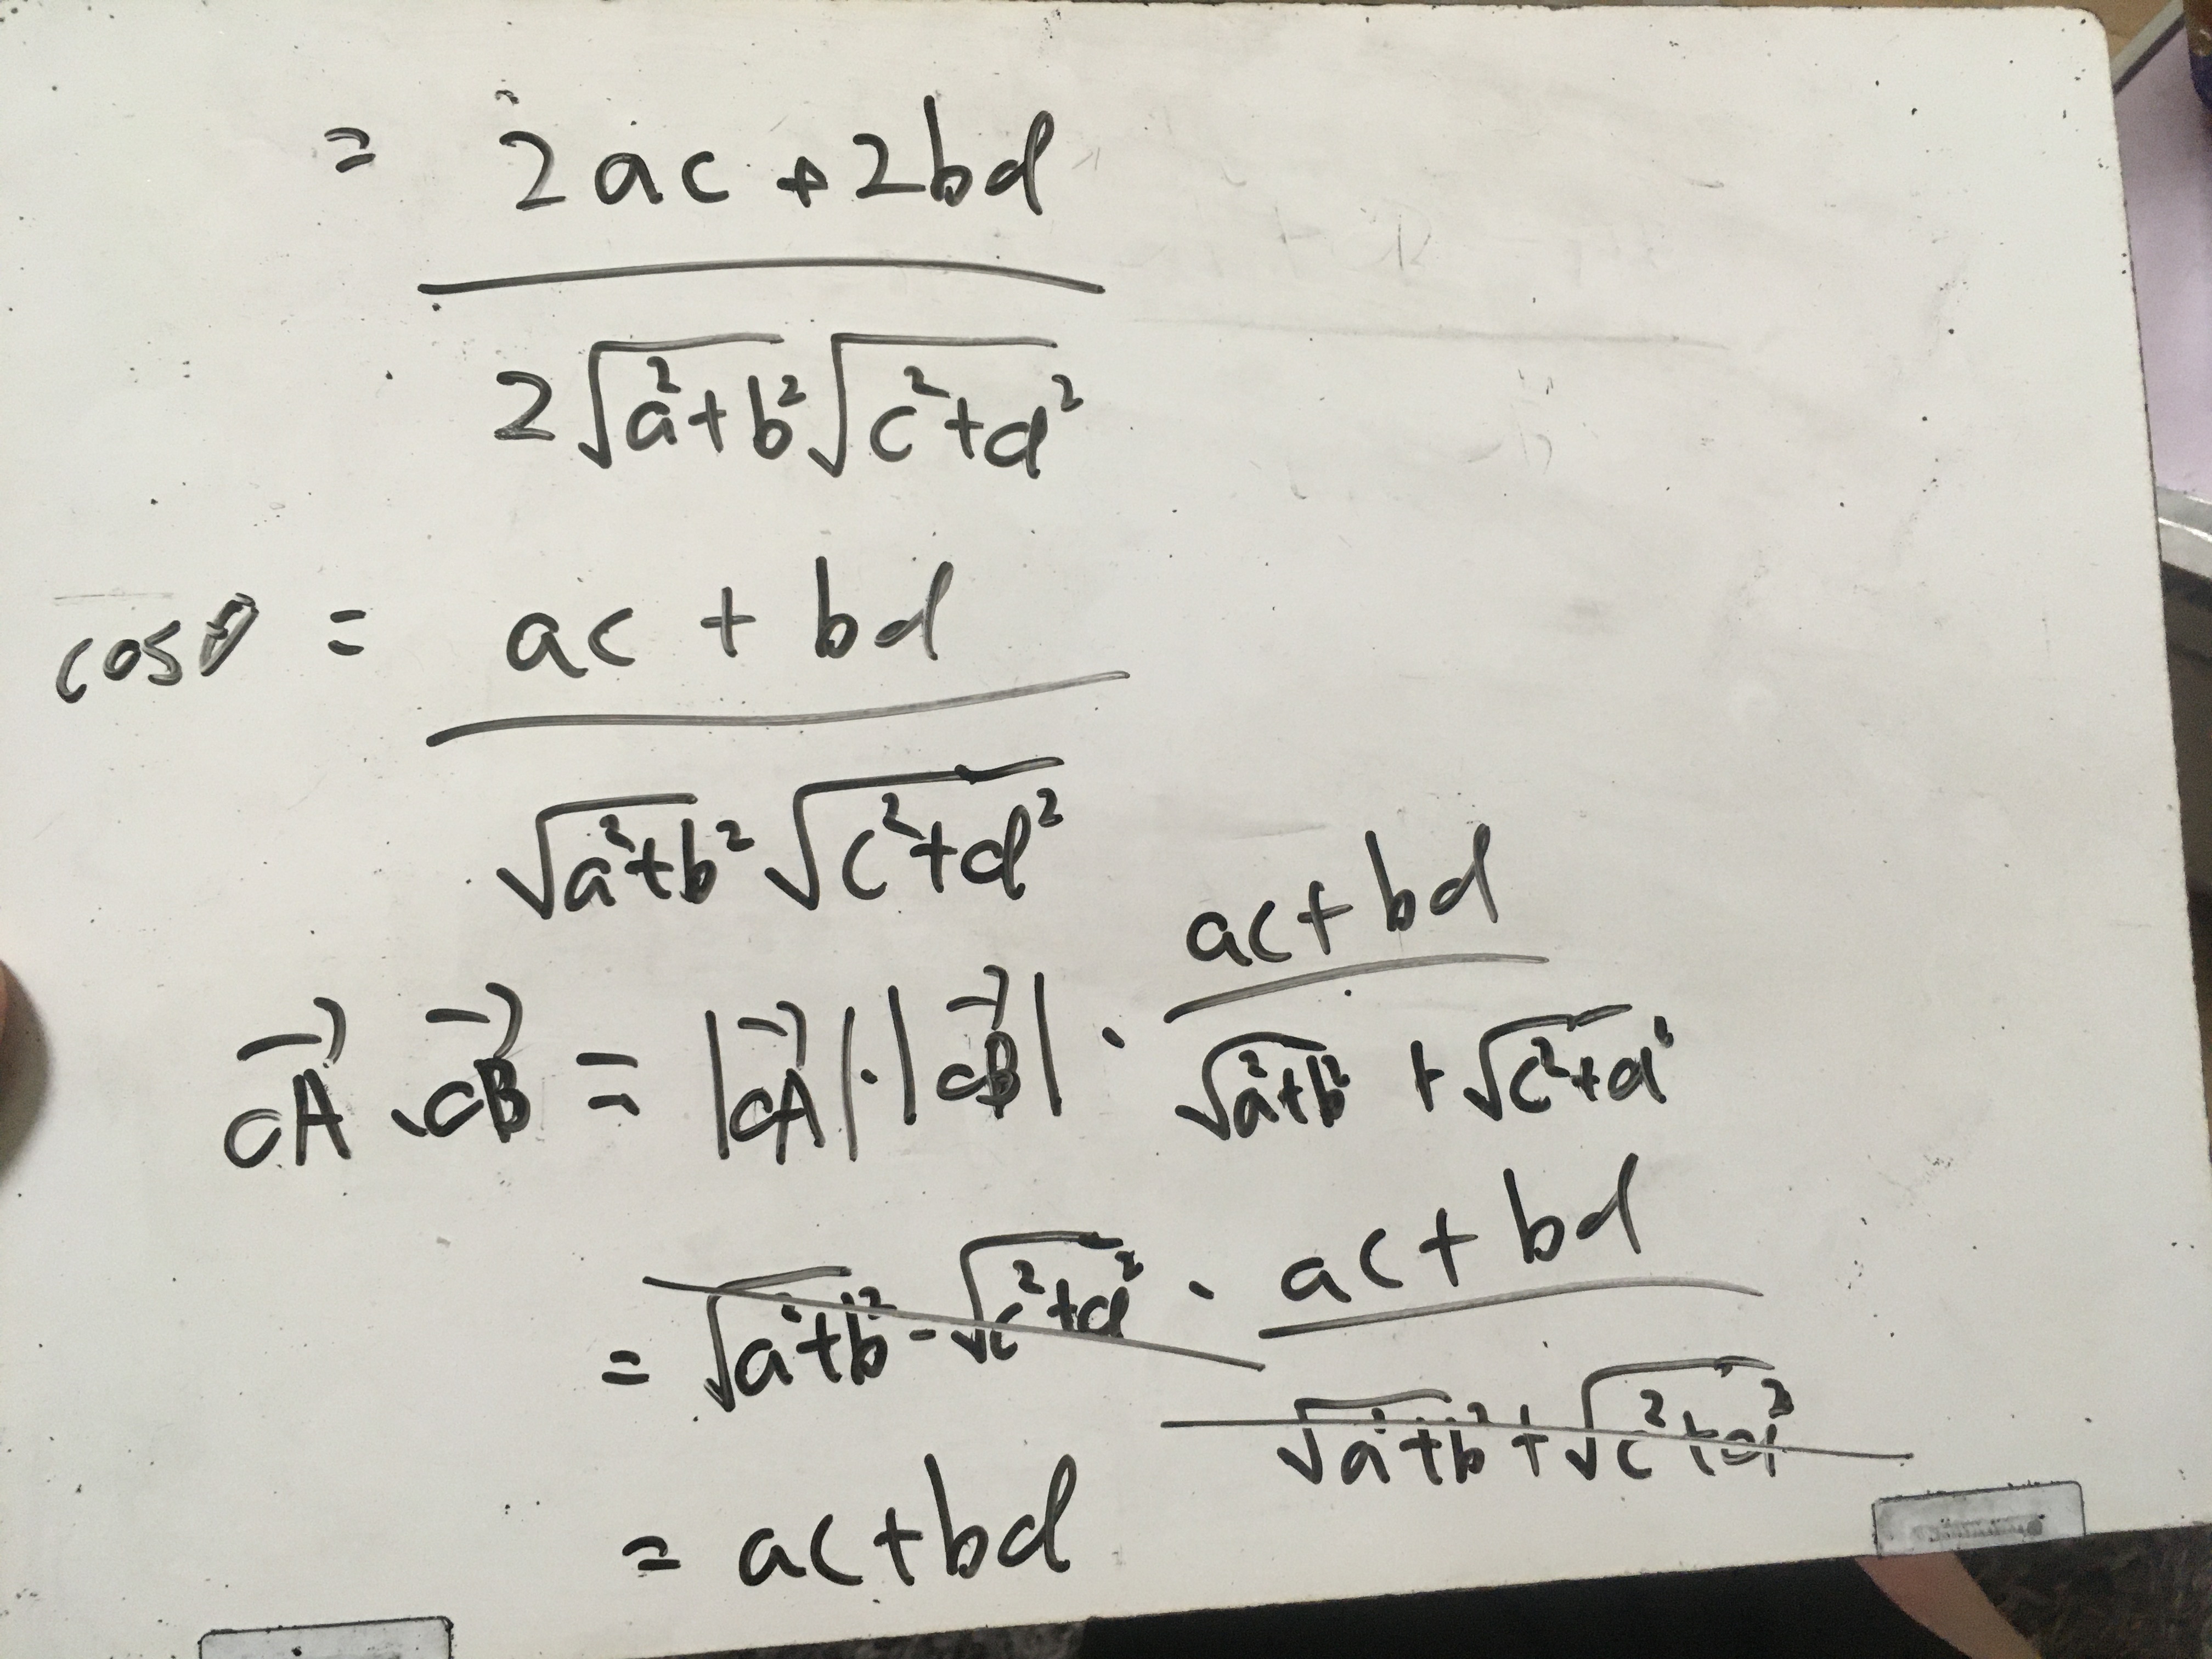 = 2ac + 2bd
2√a²+b² √c²+d²
cosθ = ac + bd
√a²+b² √c²+d²
CA · CB = |CA| · |CB| · ac + bd
√a²+b² + √c²+d²
= √a²+b² · √c²+d² · ac + bd
√a²+b² + √c²+d²
= ac + bd